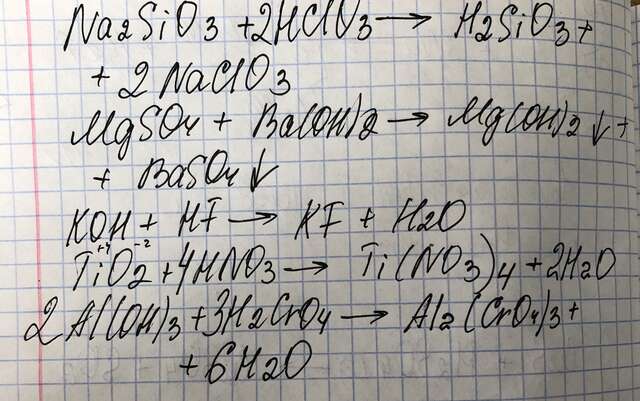 Na2SiO3 +2HClO3 → H2SiO3+
+ 2NaClO3
MgSO4 + Ba(OH)2 → Mg(OH)2↓ +
+ BaSO4↓
KOH + HF → KF + H2O
+4 -2
TiO2 +4HNO3 → Ti(NO3)4 +2H2O
2Al(OH)3 +3H2CrO4 → Al2(CrO4)3+
+6H2O